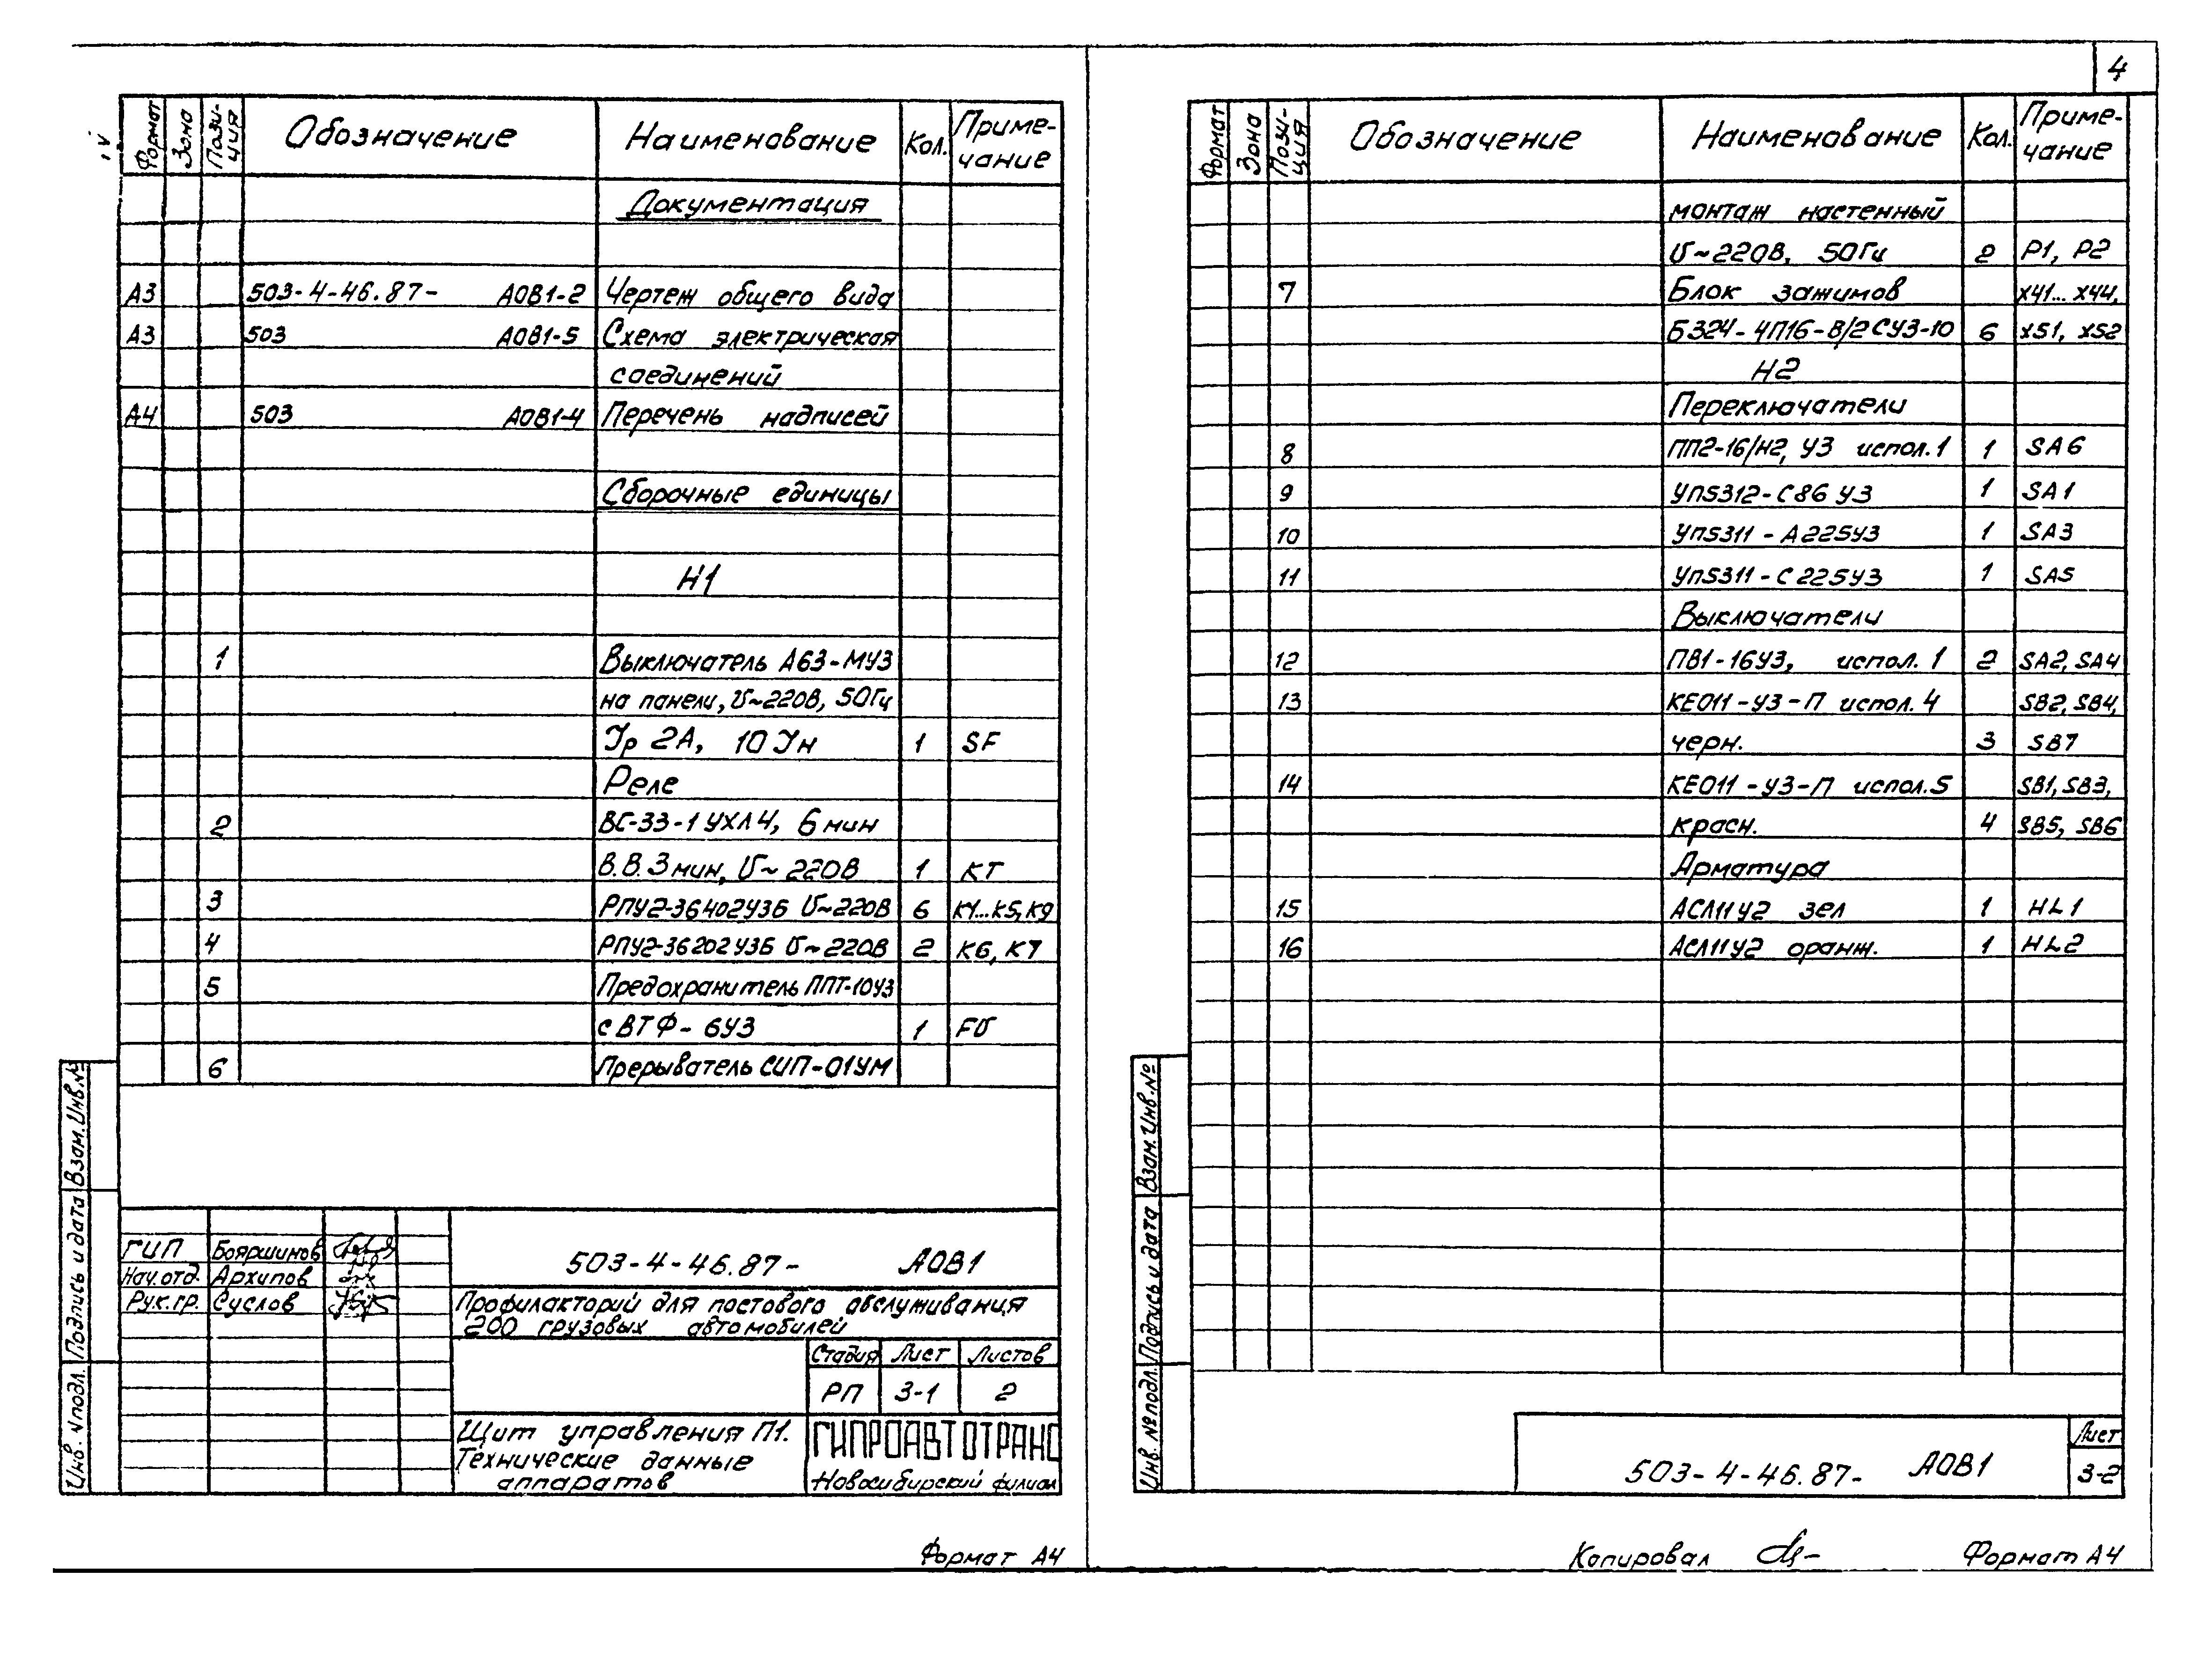 Формат Зона Пози-ция Обозначение Наименование Кол. Приме-чание
Документация
А3 503-4-46.87- АОВ1-2 Чертеж общего вида
А3 503 АОВ1-5 Схема электрическая
соединений
А4 503 АОВ1-4 Перечень надписей
Сборочные единицы
Н1
1 Выключатель А63-МУ3
на панели, U~220В, 50Гц
Iр 2А, 10 Iн 1 SF
Реле
2 ВС-33-1УХЛ4, 6 мин
В.В. 3 мин, U~ 220В 1 КТ
3 РПУ2-36402У3Б U~220В 6 К1...К5,К9
4 РПУ2-36202У3Б U~220В 2 К6, К7
5 Предохранитель ППТ-10У3
с ВТФ-6У3 1 FU
6 Прерыватель СИП-01УМ
Взам.Инв.№
Подпись и дата
Инв. №подл.
ГИП Бояршинов
Нач.отд. Архипов
Рук.гр. Суслов
503-4-46.87- АОВ1
Профилакторий для постового обслуживания
200 грузовых автомобилей
Стадия Лист Листов
РП 3-1 2
Щит управления П1.
Технические данные
аппаратов
ГИПРОАВТОТРАНС
Новосибирский филиал
Формат А4
4
Формат Зона Пози-ция Обозначение Наименование Кол. Приме-чание
монтаж настенный
U~220В, 50Гц 2 Р1, Р2
7 Блок зажимов Х41...Х44,
Б324-4П16-В/2СУ3-10 6 Х51, Х52
Н2
Переключатели
8 ПП2-16/Н2, У3 испол.1 1 SA6
9 УП5312-С86 У3 1 SA1
10 УП5311-А225У3 1 SA3
11 УП5311-С225У3 1 SA5
Выключатели
12 ПВ1-16У3, испол. 1 2 SA2, SA4
13 КЕ011-У3-П испол. 4 SB2, SB4,
черн. 3 SB7
14 КЕ011-У3-П испол.5 SB1, SB3,
красн. 4 SB5, SB6
Арматура
15 АСЛ11У2 зел 1 HL1
16 АСЛ11У2 оранж. 1 HL2
Взам.Инв.№
Подпись и дата
Инв. №подл.
503-4-46.87- АОВ1
Лист
3-2
Копировал
Формат А4